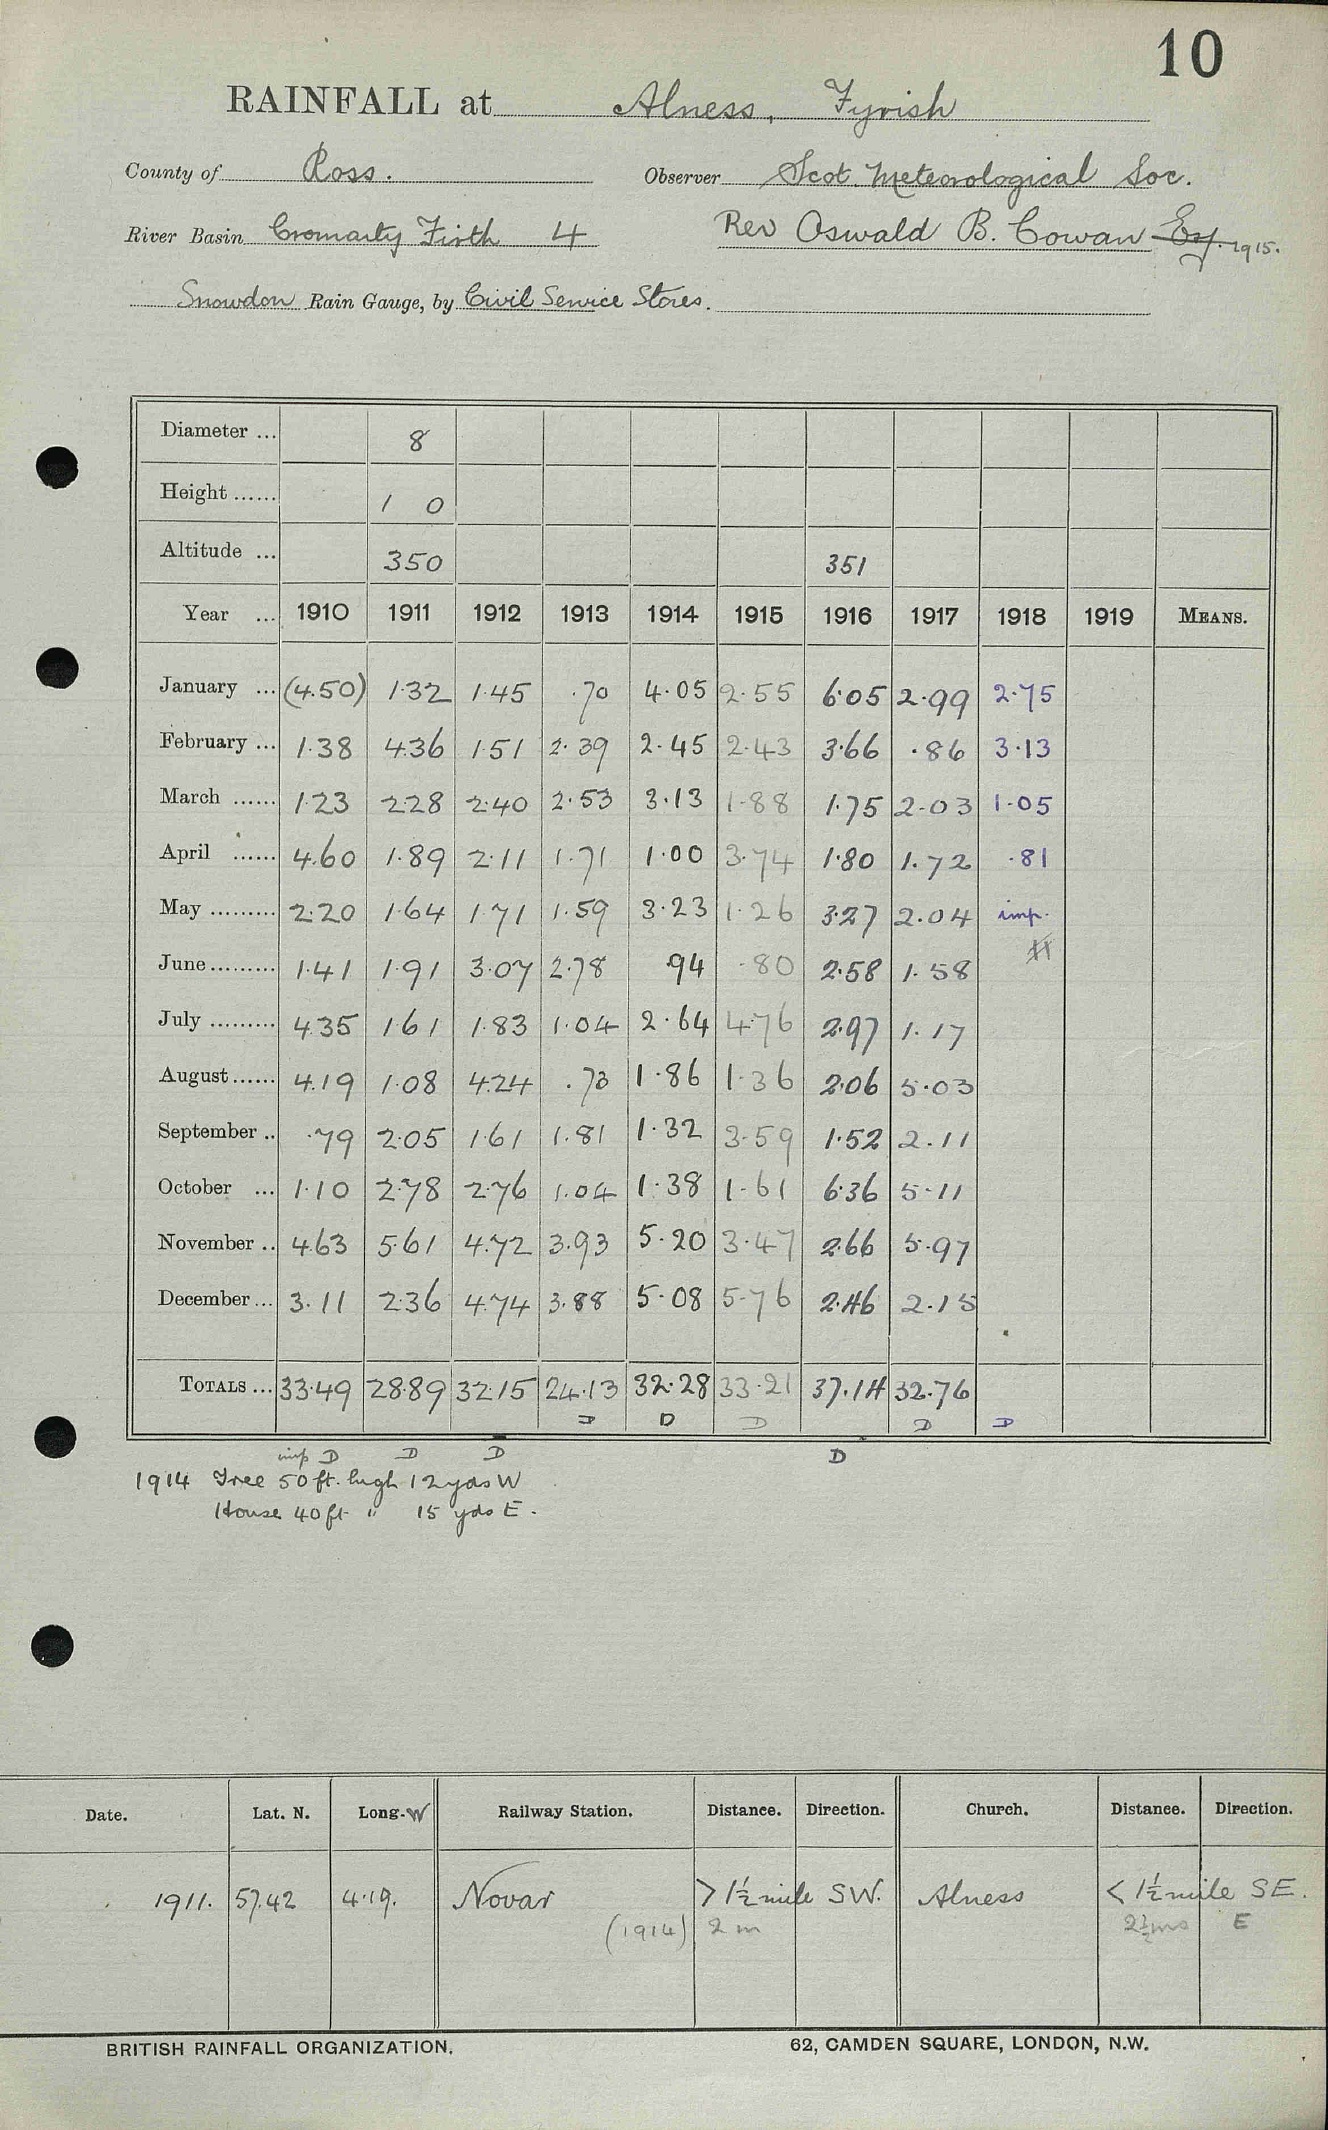 10
RAINFALL at Alness, Fyrish
County of Ross. Observer Scot. Meteorological Soc.
River Basin Cromarty Firth 4 Rev Oswald B. Cowan Esq. 1915.
Snowdon Rain Gauge, by Civil Service Stores.
Diameter ... 8
Height ...... 1 0
Altitude ... 350 351
Year ... 1910 1911 1912 1913 1914 1915 1916 1917 1918 1919 MEANS.
January ... (4.50) 1.32 1.45 .70 4.05 2.55 6.05 2.99 2.75
February ... 1.38 4.36 1.51 2.39 2.45 2.43 3.66 .86 3.13
March ...... 1.23 2.28 2.40 2.53 3.13 1.88 1.75 2.03 1.05
April ...... 4.60 1.89 2.11 1.71 1.00 3.74 1.80 1.72 .81
May ......... 2.20 1.64 1.71 1.59 3.23 1.26 3.27 2.04 imp.
June ......... 1.41 1.91 3.07 2.78 .94 .80 2.58 1.58
July ......... 4.35 1.61 1.83 1.04 2.64 4.76 2.97 1.17
August ...... 4.19 1.08 4.24 .73 1.86 1.36 2.06 5.03
September .. .79 2.05 1.61 1.81 1.32 3.59 1.52 2.11
October ... 1.10 2.78 2.76 1.04 1.38 1.61 6.36 5.11
November .. 4.63 5.61 4.72 3.93 5.20 3.47 2.66 5.97
December ... 3.11 2.36 4.74 3.88 5.08 5.76 2.46 2.15
TOTALS ... 33.49 28.89 32.15 24.13 32.28 33.21 37.14 32.76
D D D D D
imp D D D D
1914 Tree 50 ft. high 12 yds W
House 40 ft " 15 yds E.
Date. Lat. N. Long. W Railway Station. Distance. Direction. Church. Distance. Direction.
1911. 57.42 4.19. Novar > 1½ mile SW. Alness < 1½ mile SE.
(1914) 2 m 2½ ms E
BRITISH RAINFALL ORGANIZATION. 62, CAMDEN SQUARE, LONDON, N.W.